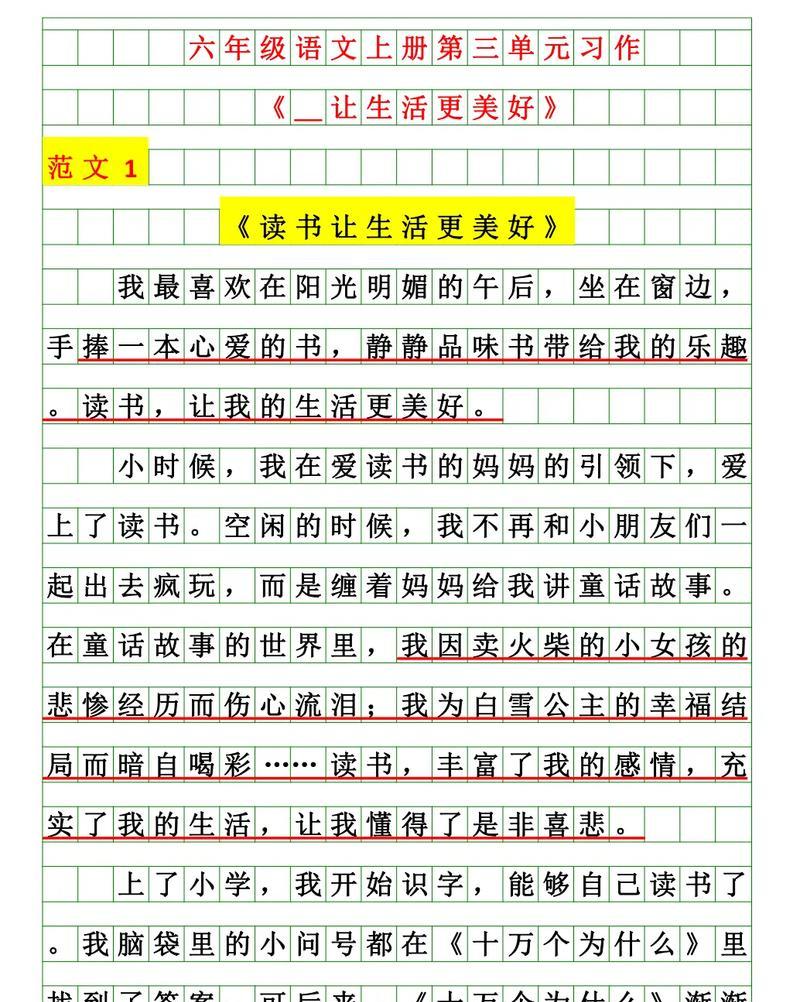 六年级语文上册第三单元习作
《__让生活更美好》
范文1
《读书让生活更美好》
我最喜欢在阳光明媚的午后，坐在窗边，
手捧一本心爱的书，静静品味书带给我的乐趣
。读书，让我的生活更美好。
小时候，我在爱读书的妈妈的引领下，爱
上了读书。空闲的时候，我不再和小朋友们一
起出去疯玩，而是缠着妈妈给我讲童话故事。
在童话故事的世界里，我因卖火柴的小女孩的
悲惨经历而伤心流泪；我为白雪公主的幸福结
局而暗自喝彩……读书，丰富了我的感情，充
实了我的生活，让我懂得了是非喜悲。
上了小学，我开始识字，能够自己读书了
。我脑袋里的小问号都在《十万个为什么》里
找到了答案，可后来，《十万个为什么》渐渐